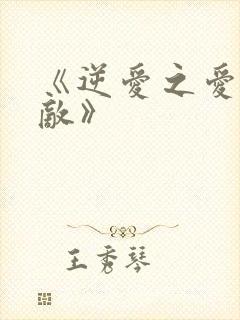 《逆爱之爱
敵》
王秀琴